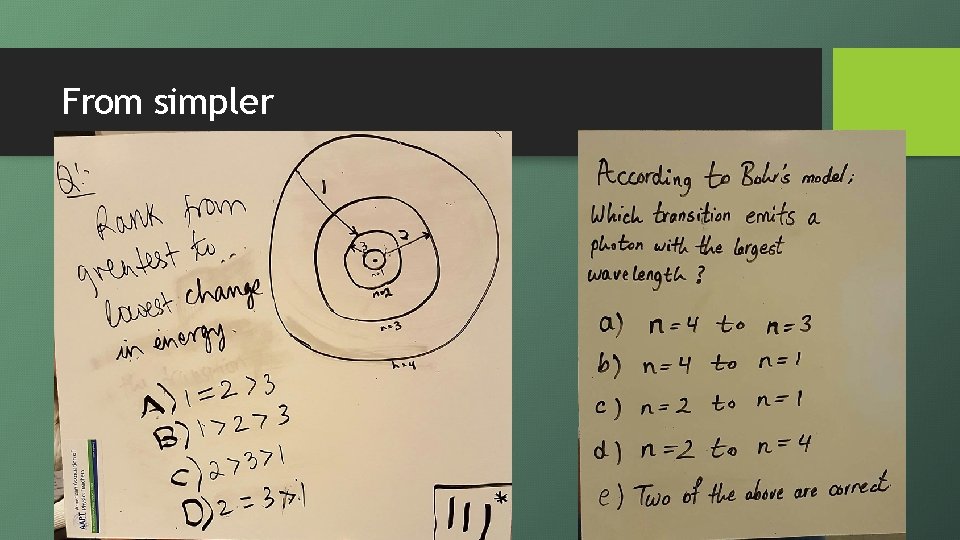 From simpler
Q1:
Rank from
greatest to..
lowest change
in energy.
1
2
3
n=1
n=2
n=3
n=4
A) 1=2>3
B) 1>2>3
C) 2>3>1
D) 2=3>1
111*
According to Bohr's model;
Which transition emits a
photon with the largest
wavelength?
a) n=4 to n=3
b) n=4 to n=1
c) n=2 to n=1
d) n=2 to n=4
e) Two of the above are correct